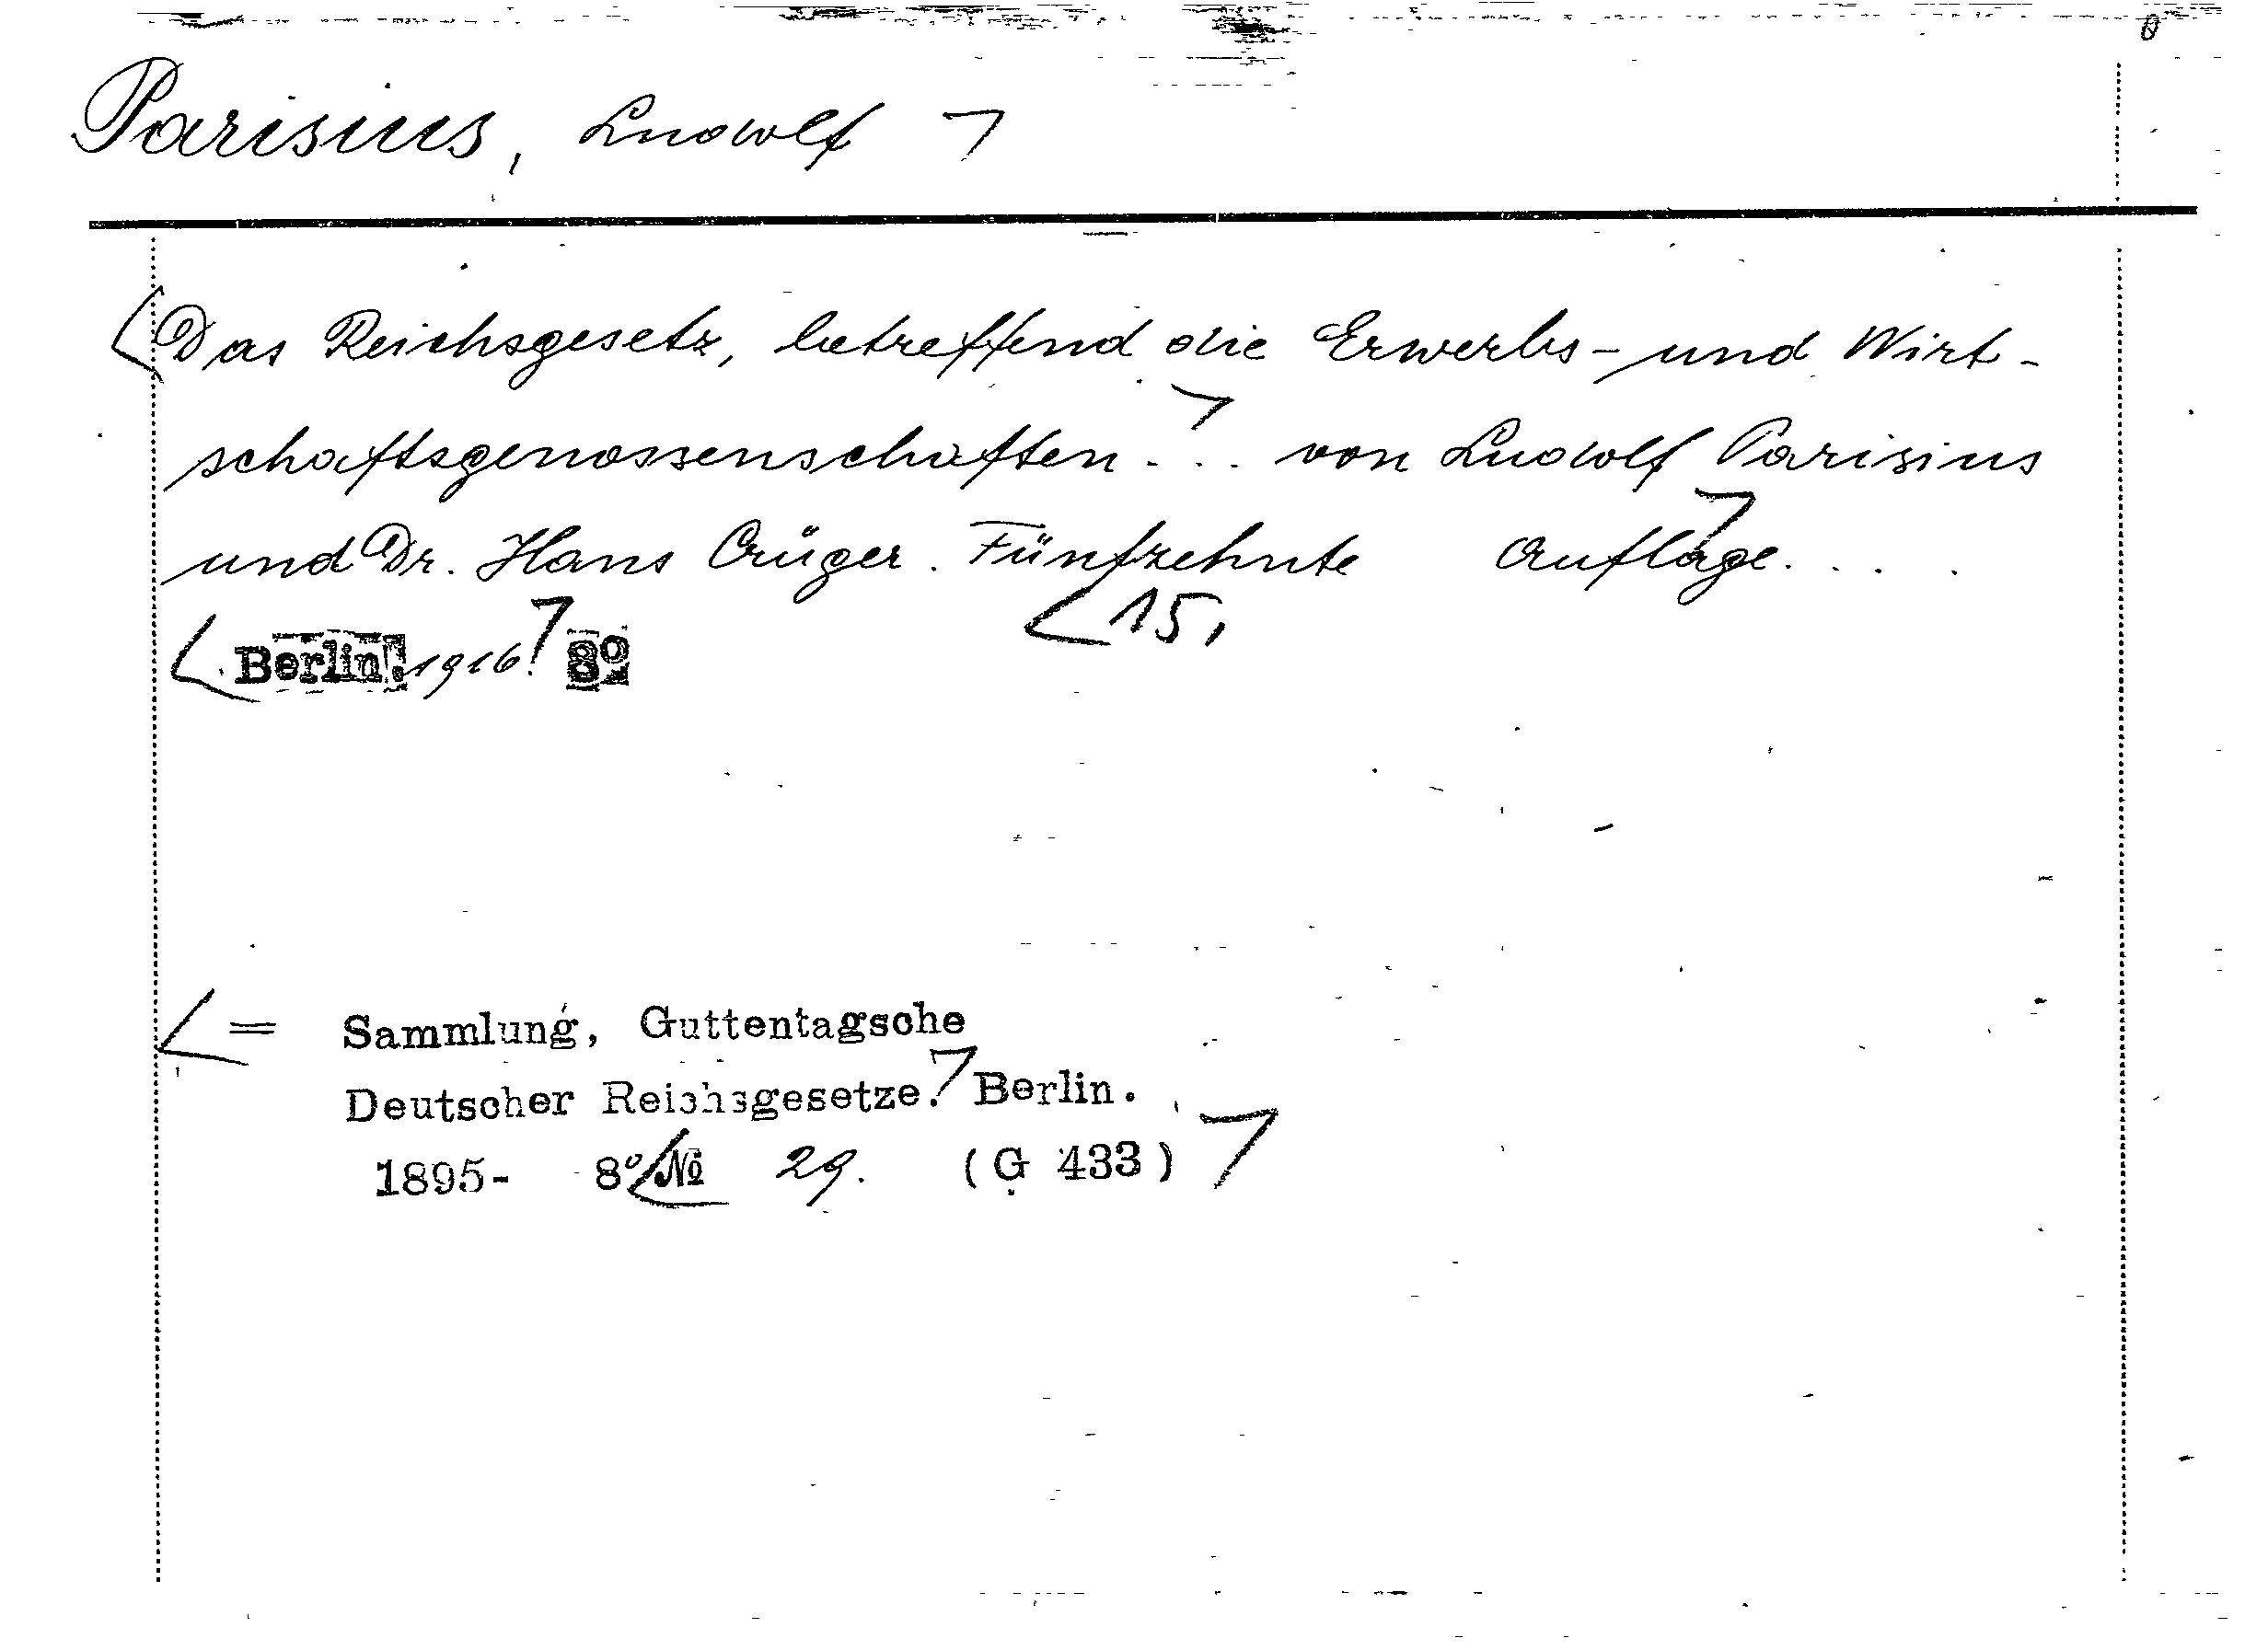 Parisius, Ludolf
Das Reichsgesetz, betreffend die Erwerbs- und Wirt-
schaftsgenossenschaften ... von Ludolf Parisius
und Dr. Hans Crüger. Fünfzehnte Auflage....
15,
Berlin. 1916. 8º
= Sammlung, Guttentagsche
Deutscher Reichsgesetze. Berlin.
1895- 8º № 29. (G 433)